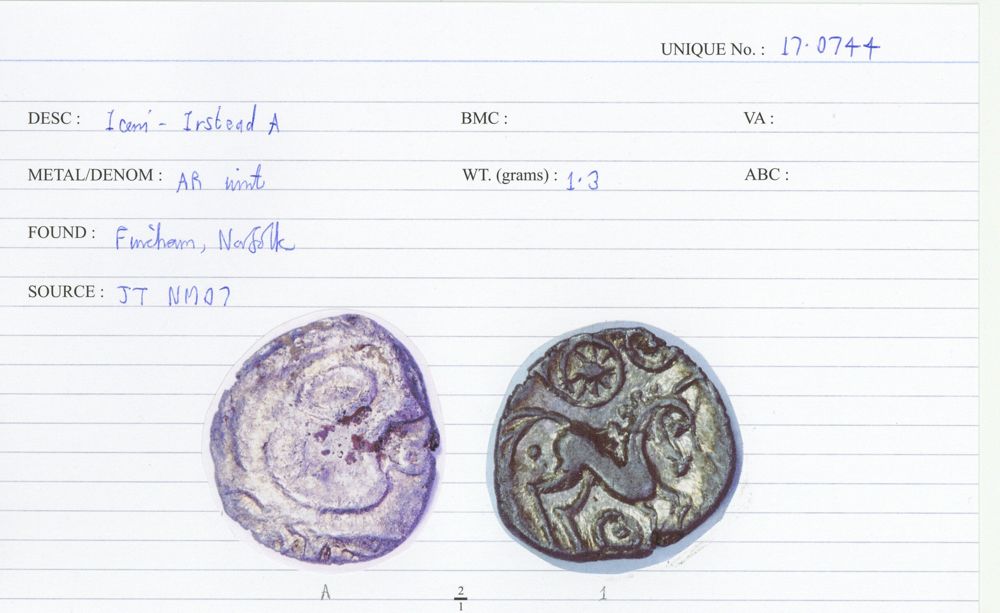 UNIQUE No. : 17·0744
DESC : Iceni - Irstead A BMC : VA :
METAL/DENOM : AR unit WT. (grams) : 1·3 ABC :
FOUND : Fincham, Norfolk
SOURCE : JT NM07
A 2/1 1